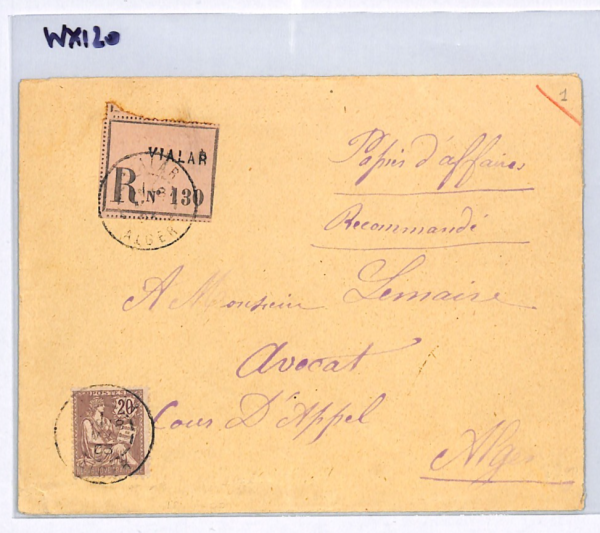 WX120
1
VIALAR
R No 130
ALGER
Papiers d'affaires
Recommandé
A Monsieur Lemaire
Avocat
Cour D'Appel
Alger
POSTES
20